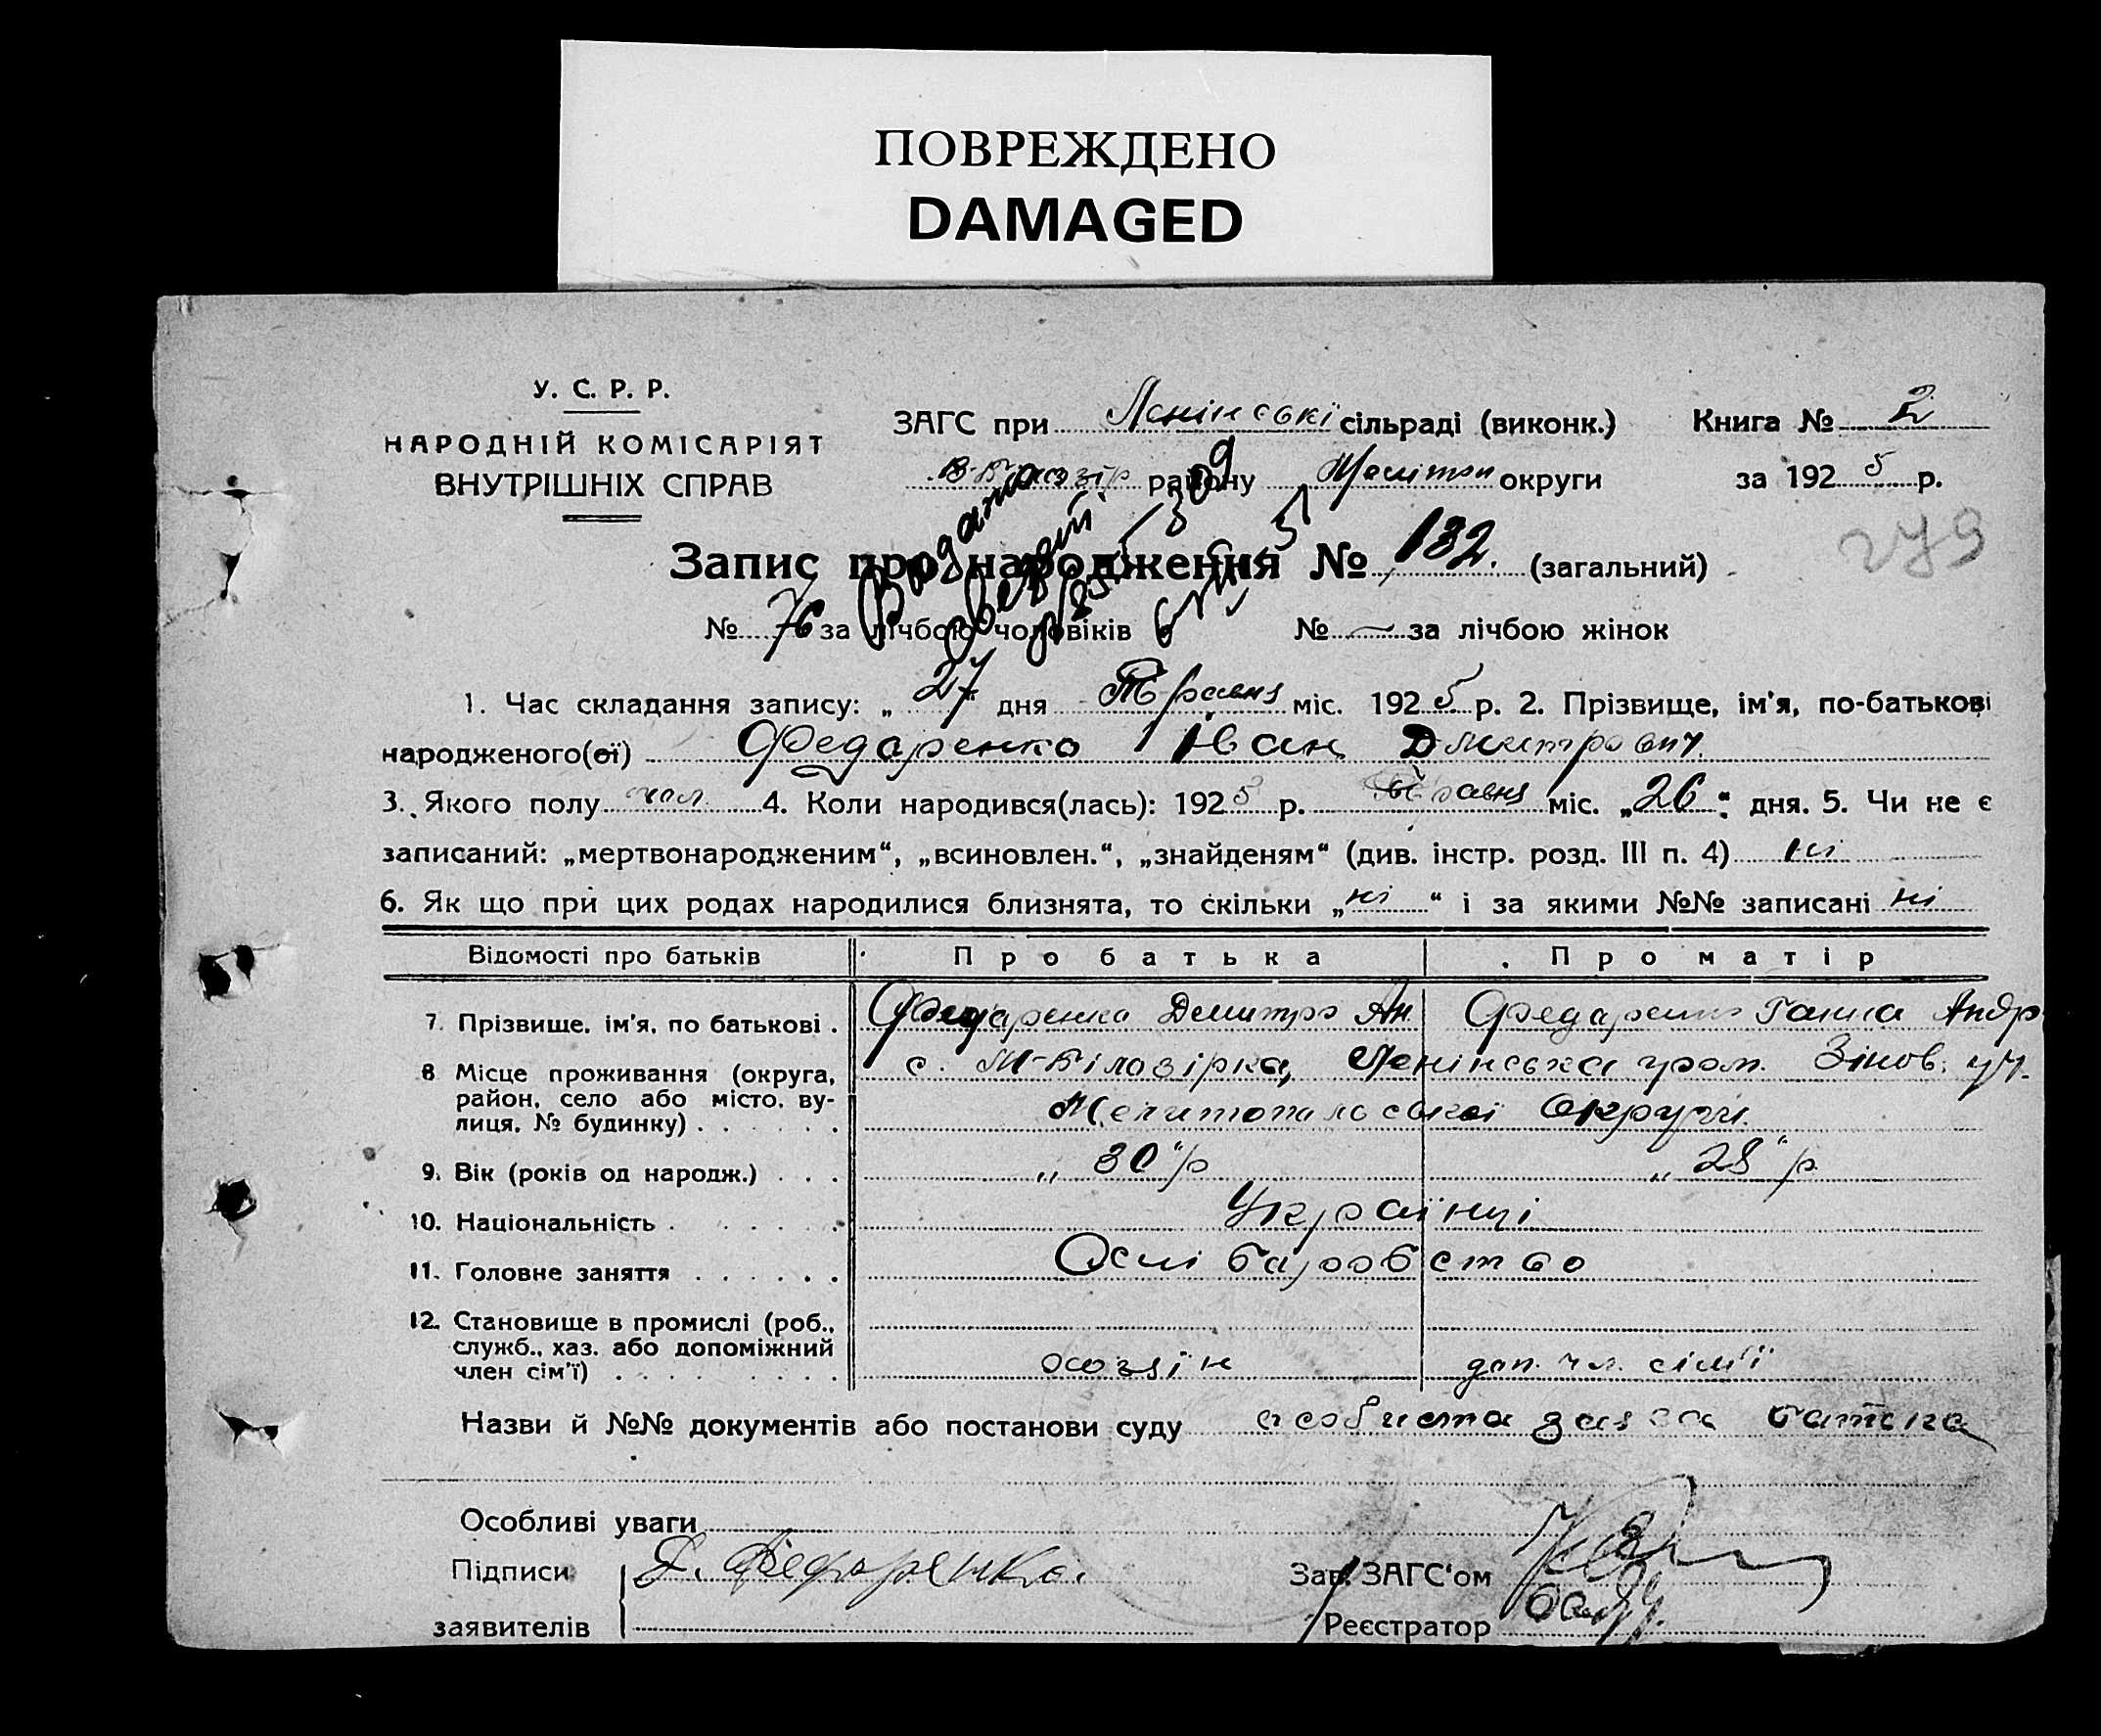 ПОВРЕЖДЕНО
DAMAGED
У. С. Р. Р.
НАРОДНІЙ КОМІСАРІЯТ
ВНУТРІШНІХ СПРАВ
ЗАГС при Ленінські сільраді (виконк.) Книга № 2
району Мелітоп округи за 1925 р.
Видано
279
Запис про народження № 132. (загальний)
№ 76 за лічбою чоловіків № — за лічбою жінок
1. Час складання запису: „27“ дня Травня міс. 1925 р. 2. Прізвище, ім'я, по-батькові
народженого(ої) Федаренко Іван Дмитрович.
3. Якого полу чол. 4. Коли народився(лась): 1925 р. Травня міс. „26“ дня. 5. Чи не є
записаний: „мертвонародженим“, „всиновлен.“, „знайденям“ (див. інстр. розд. III п. 4) ні
6. Як що при цих родах народилися близнята, то скільки „ні“ і за якими №№ записані ні
Відомості про батьків Про батька Про матір
7. Прізвище, ім'я, по батькові . Федаренко Демитро Ан. Федаренко Ганна Андр
8 Місце проживання (округа, с. М-Білозірка, Ленінська гром. Зінов. уч.
район, село або місто, ву-
лиця, № будинку) . . . . . . Мелитопальської Округи.
9. Вік (років од народж.) . . . „30“ р „28“ р
10. Національність . . . . . Українці
11. Головне заняття . . . . . . Осліборобство
12. Становище в промислі (роб.,
служб., хаз. або допоміжний
член сім'ї) . . . . . . . . хозяін доп. чл. сімї
Назви й №№ документів або постанови суду особиста заява батька
Особливі уваги
Підписи Д. Федоренко. Зав. ЗАГС'ом
заявителів Реєстратор